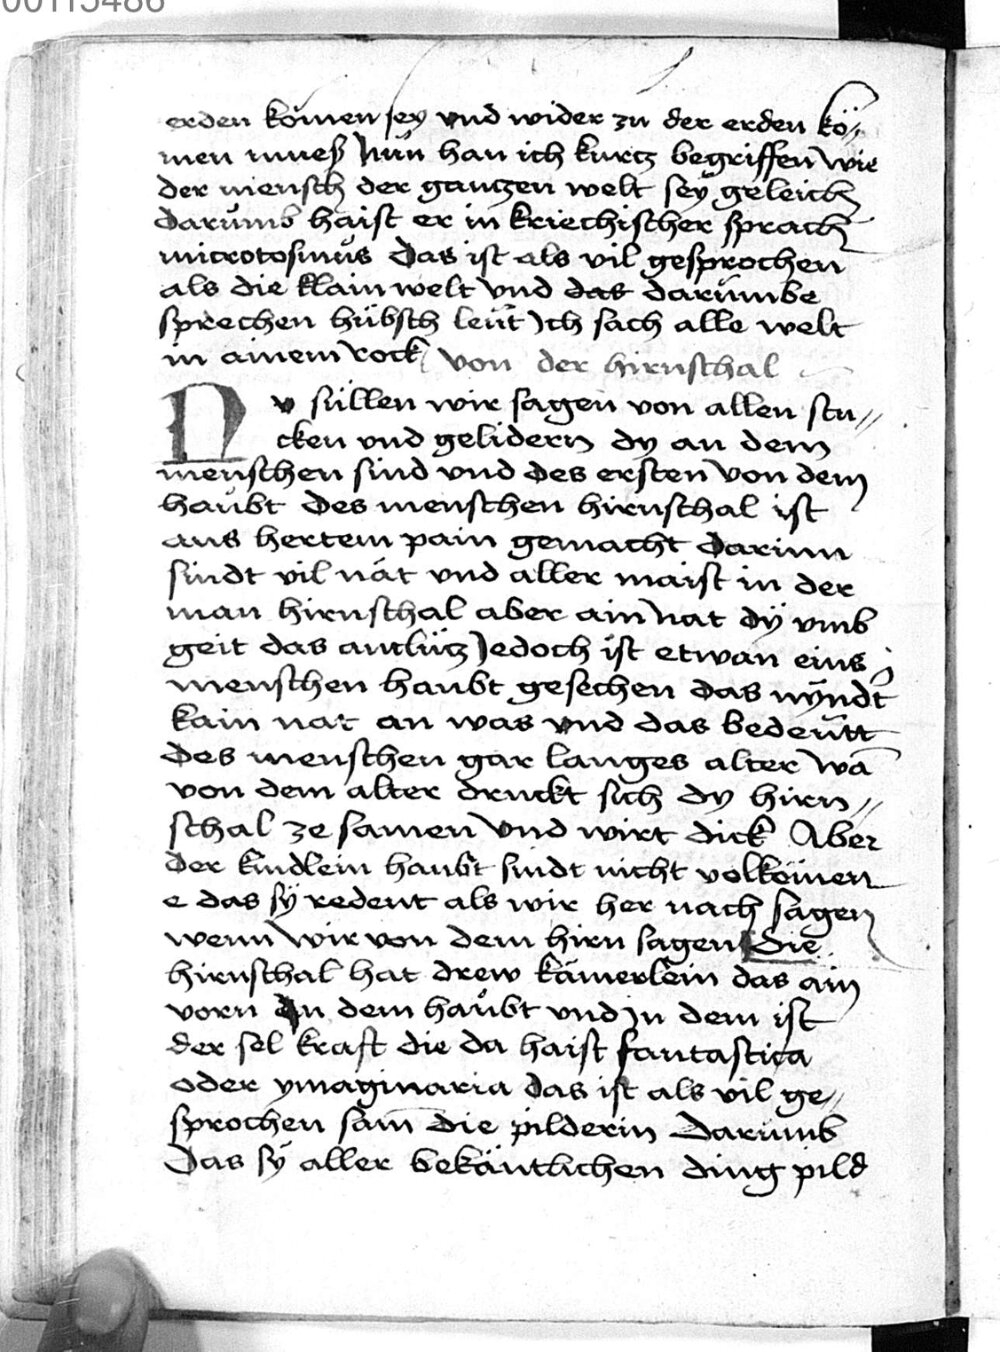 00115486
erden kömen sey vnd wider zu der erden kö//
men mueß Nun han ich kurtz begriffen wie
der mensch der gantzen welt seÿ geleich
darumb haist er in kriechischer sprach
microtosmus das ist als vil gesprochen
als die klain welt vnd das darumbe
sprechen hübsch leut Ich sach alle welt
in ainem rock von der hirnschal
Nv süllen wir sagen von allen stu//
cken vnd gelidern dy an dem
menschen sind vnd des ersten von dem
haubt des menschen hirnschal ist
aus hertem pain gemacht darinn
sindt vil nät vnd aller maist in der
man hirnschal aber ain nat dÿ vmb
geit das antlütz Jedoch ist etwan eins
menschen haubt gesechen das nÿndt
kain nat an was vnd das bedeutt
des menschen gar langes alter wā
von dem alter druckt sich dy hirn//
schal ze samen vnd wirt dick Aber
der kindlein haubt sindt nicht volkömen
e das sÿ redent als wir her nach sagen
wenn wir von dem hirn sagen die
hirnschal hat drew kämerlein das ain
vorn in dem haubt vnd in dem ist
der sel kraft die da haist fantastica
oder ymaginaria das ist als vil ge//
sprochen sam die pilderin Darumb
Das sÿ aller bekäntlichen ding pild